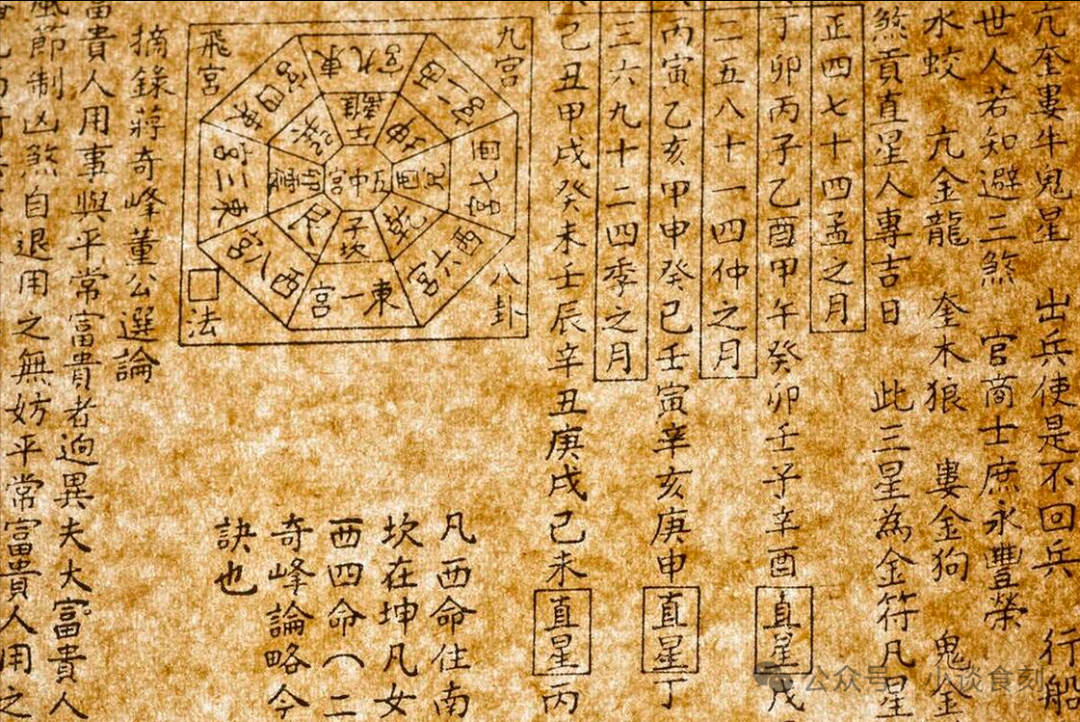 亢奎婁牛鬼星 出兵使是不回兵 行船
世人若知避三煞 官商士庶永豐榮
水蛟 亢金龍 奎木狼 婁金狗 鬼金
煞貢直星人專吉日 此三星為金符凡星
正四七十四孟之月
丁卯丙子乙酉甲午癸卯壬子辛酉直星戊
二五八十一四仲之月
丙寅乙亥甲申癸巳壬寅辛亥庚申直星丁
三六九十二四季之月
己丑甲戌癸未壬辰辛丑庚戌己未直星丙
九宮
八卦
飛宮
□法
東九宮
西七宮
西六宮
東一宮
西八宮
東三宮
東四宮
離
坤
兌酉
乾
子坎
艮
卯震
巽
五中宮
凡西命住南
坎在坤凡女
西四命(二
奇峰論略今
訣也
摘錄蔣奇峰董公選論
富貴人用事與平常富貴者逈異夫大富貴人
風節制凶煞自退用之無妨平常富貴人用之
公众号·小谈食刻